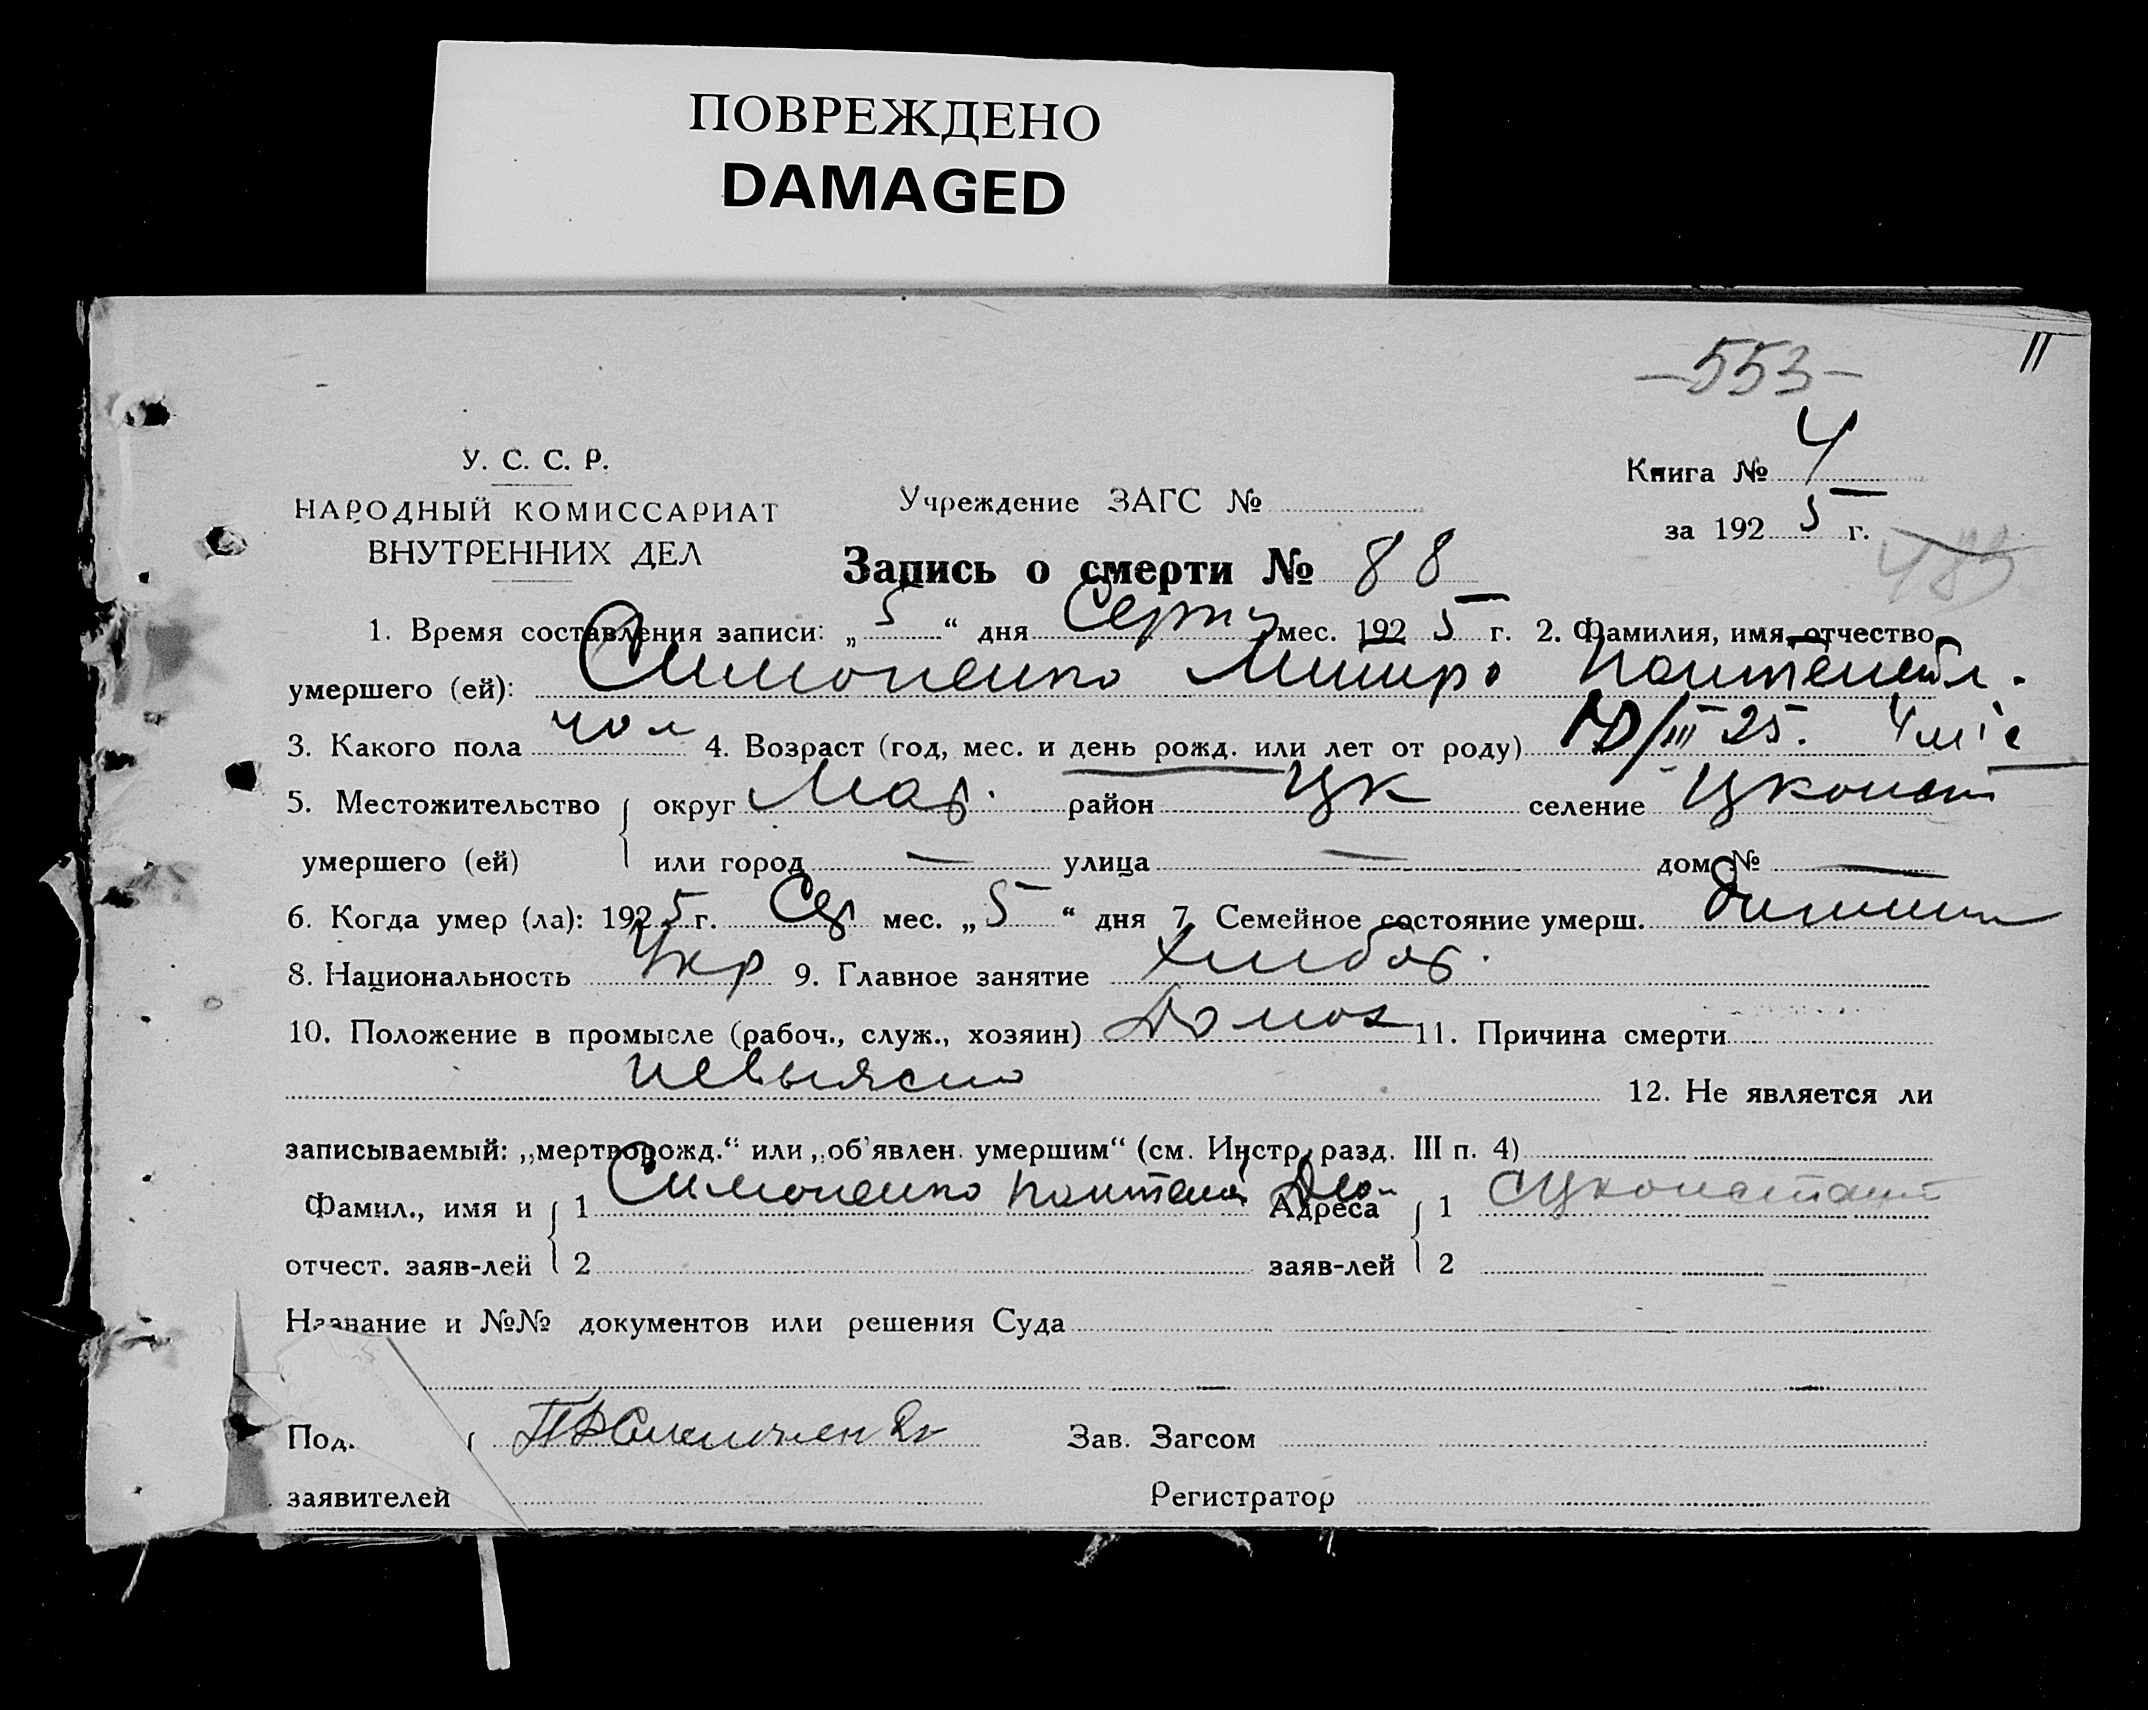 ПОВРЕЖДЕНО
DAMAGED
II
—553—
У. С. С. Р.
НАРОДНЫЙ КОМИССАРИАТ
ВНУТРЕННИХ ДЕЛ
Учреждение ЗАГС №
Книга № 4
за 192 5 г.
Запись о смерти № 88
1. Время составления записи: „ 5 “ дня мес. 192 5 г. 2. Фамилия, имя, отчество
умершего (ей): Симоненко
3. Какого пола чол 4. Возраст (год, мес. и день рожд. или лет от роду) /III 25. 4 міс
5. Местожительство округ Мар. район ЦК селение Цконст
умершего (ей) или город — улица — дом № —
6. Когда умер (ла): 192 5 г. Сер мес. „ 5 “ дня 7. Семейное состояние умерш.
8. Национальность Укр 9. Главное занятие хлибор.
10. Положение в промысле (рабоч., служ., хозяин) 11. Причина смерти
невыясно
12. Не является ли
записываемый: „мертворожд.“ или „об’явлен умершим“ (см. Инстр. разд. III п. 4)
Фамил., имя и 1 Симоненко Адреса 1
отчест. заяв-лей 2 заяв-лей 2
Название и №№ документов или решения Суда
Под. Зав. Загсом
заявителей Регистратор